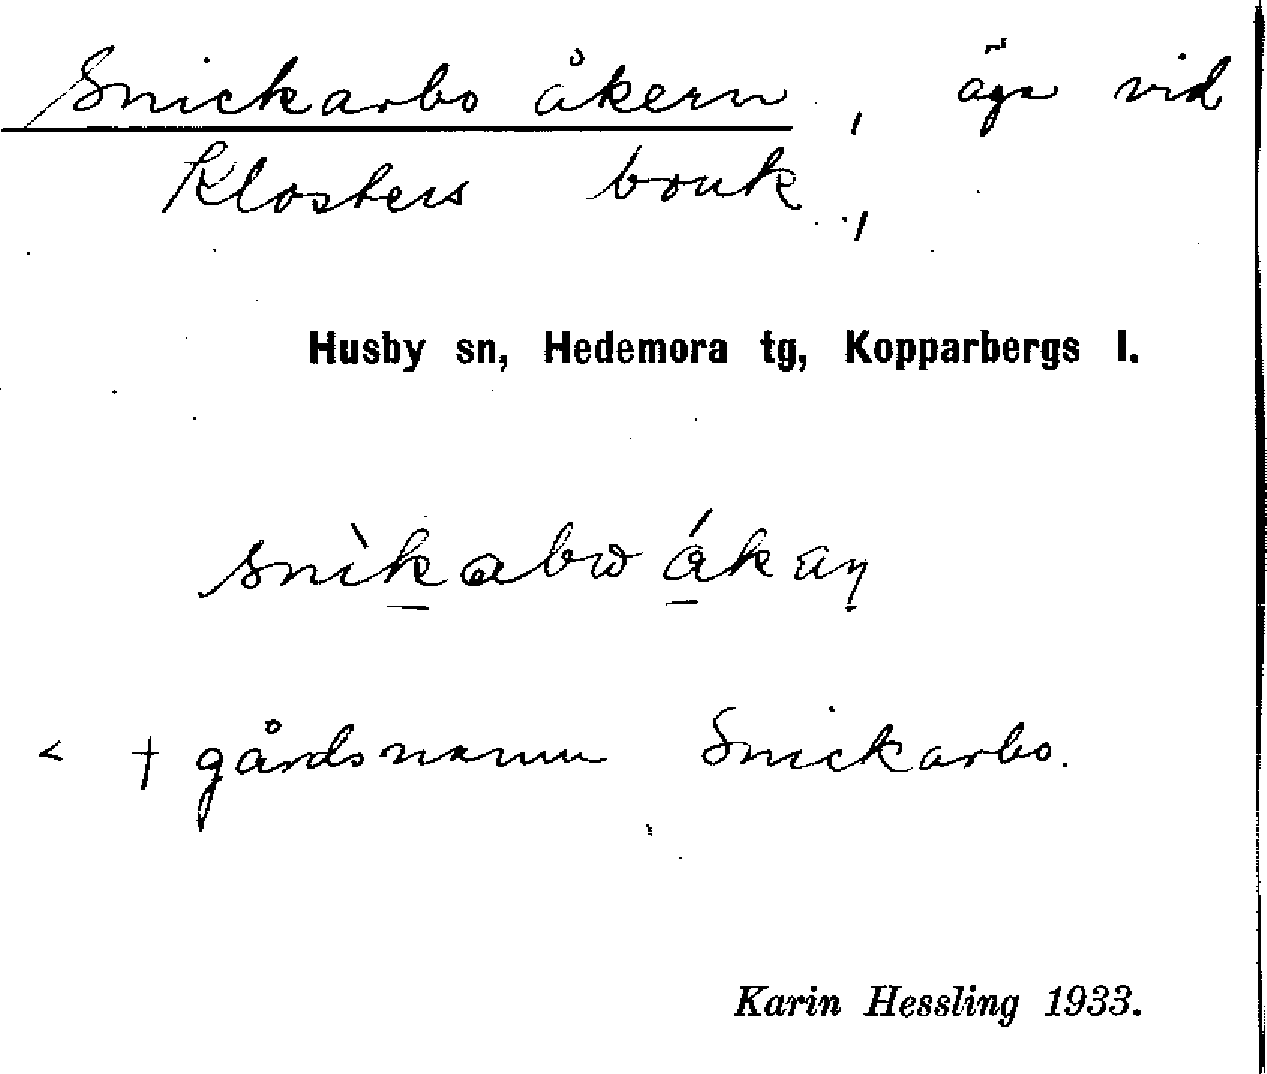 Snickarbo åkern, äga vid
Klosters bruk,
Husby sn, Hedemora tg, Kopparbergs l.
< † gårdsnamn Snickarbo.
Karin Hessling 1933.